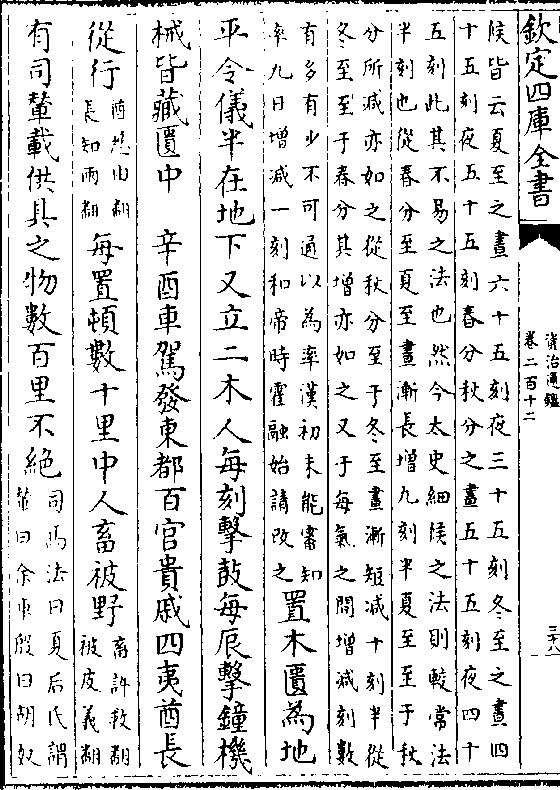 欽定四庫全書
資治通鑑
卷二百十二
三十八
候皆云夏至之晝六十五刻夜三十五刻冬至之晝四
十五刻夜五十五刻春分秋分之晝五十五刻夜四十
五刻此其不易之法也然今太史細候之法則較常法
半刻也從春分至夏至晝漸長增九刻半夏至至于秋
分所減亦如之從秋分至于冬至晝漸短減十刻半從
冬至至于春分其增亦如之又于每氣之間增減刻數
有多有少不可通以為率漢初未能審知
率九日增減一刻和帝時霍融始請改之
置木匱為地
平令儀半在地下又立二木人每刻擊鼓每辰擊鐘機
械皆藏匱中 辛酉車駕發東都百官貴戚四夷酋長
從行
酋慈由翻
長知兩翻
每置頓數十里中人畜被野
畜許救翻
被皮義翻
有司輦載供具之物數百里不絶
司馬法曰夏后氏謂
輦曰余車殷曰胡奴